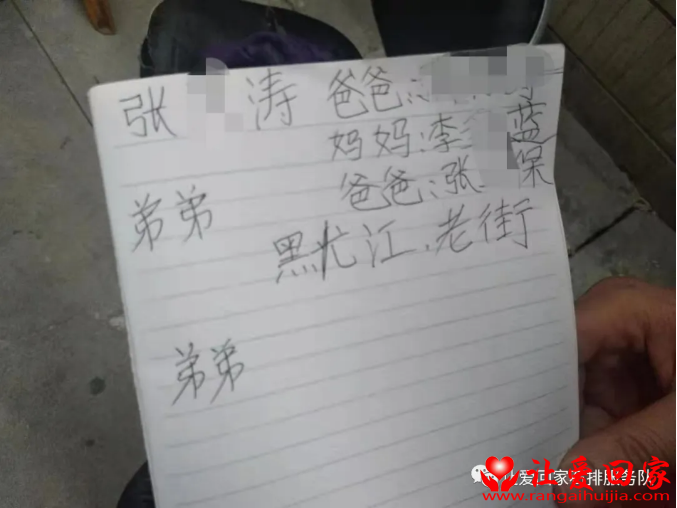 张 涛 爸爸:
妈妈:李 蓝
弟弟 爸爸:张 保
黑尤江.老街
弟弟
让爱回家
www.rangaihuijia.com